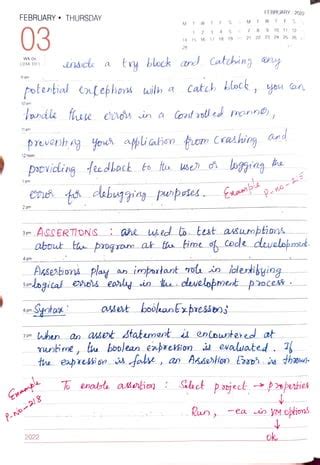 FEBRUARY • THURSDAY
FEBRUARY - 2022
03
inside a try block and catching any
potential exceptions with a catch block, you can
handle these errors in a controlled manner,
preventing your application from crashing and
providing feedback to the user or logging the
error for debugging purposes. Example P.no-215
ASSERTIONS : are used to test assumptions
about the program at the time of code development.
Assertions play an important role in identifying
logical errors early in the development process.
Syntax: assert booleanExpression;
When an assert statement is encountered at
runtime, the boolean expression is evaluated. If
the expression is false, an Assertion Error is thrown.
Example P.no-218
To enable assertion : Select project → properties
↓
Run, -ea in vm options
↓
OK
2022